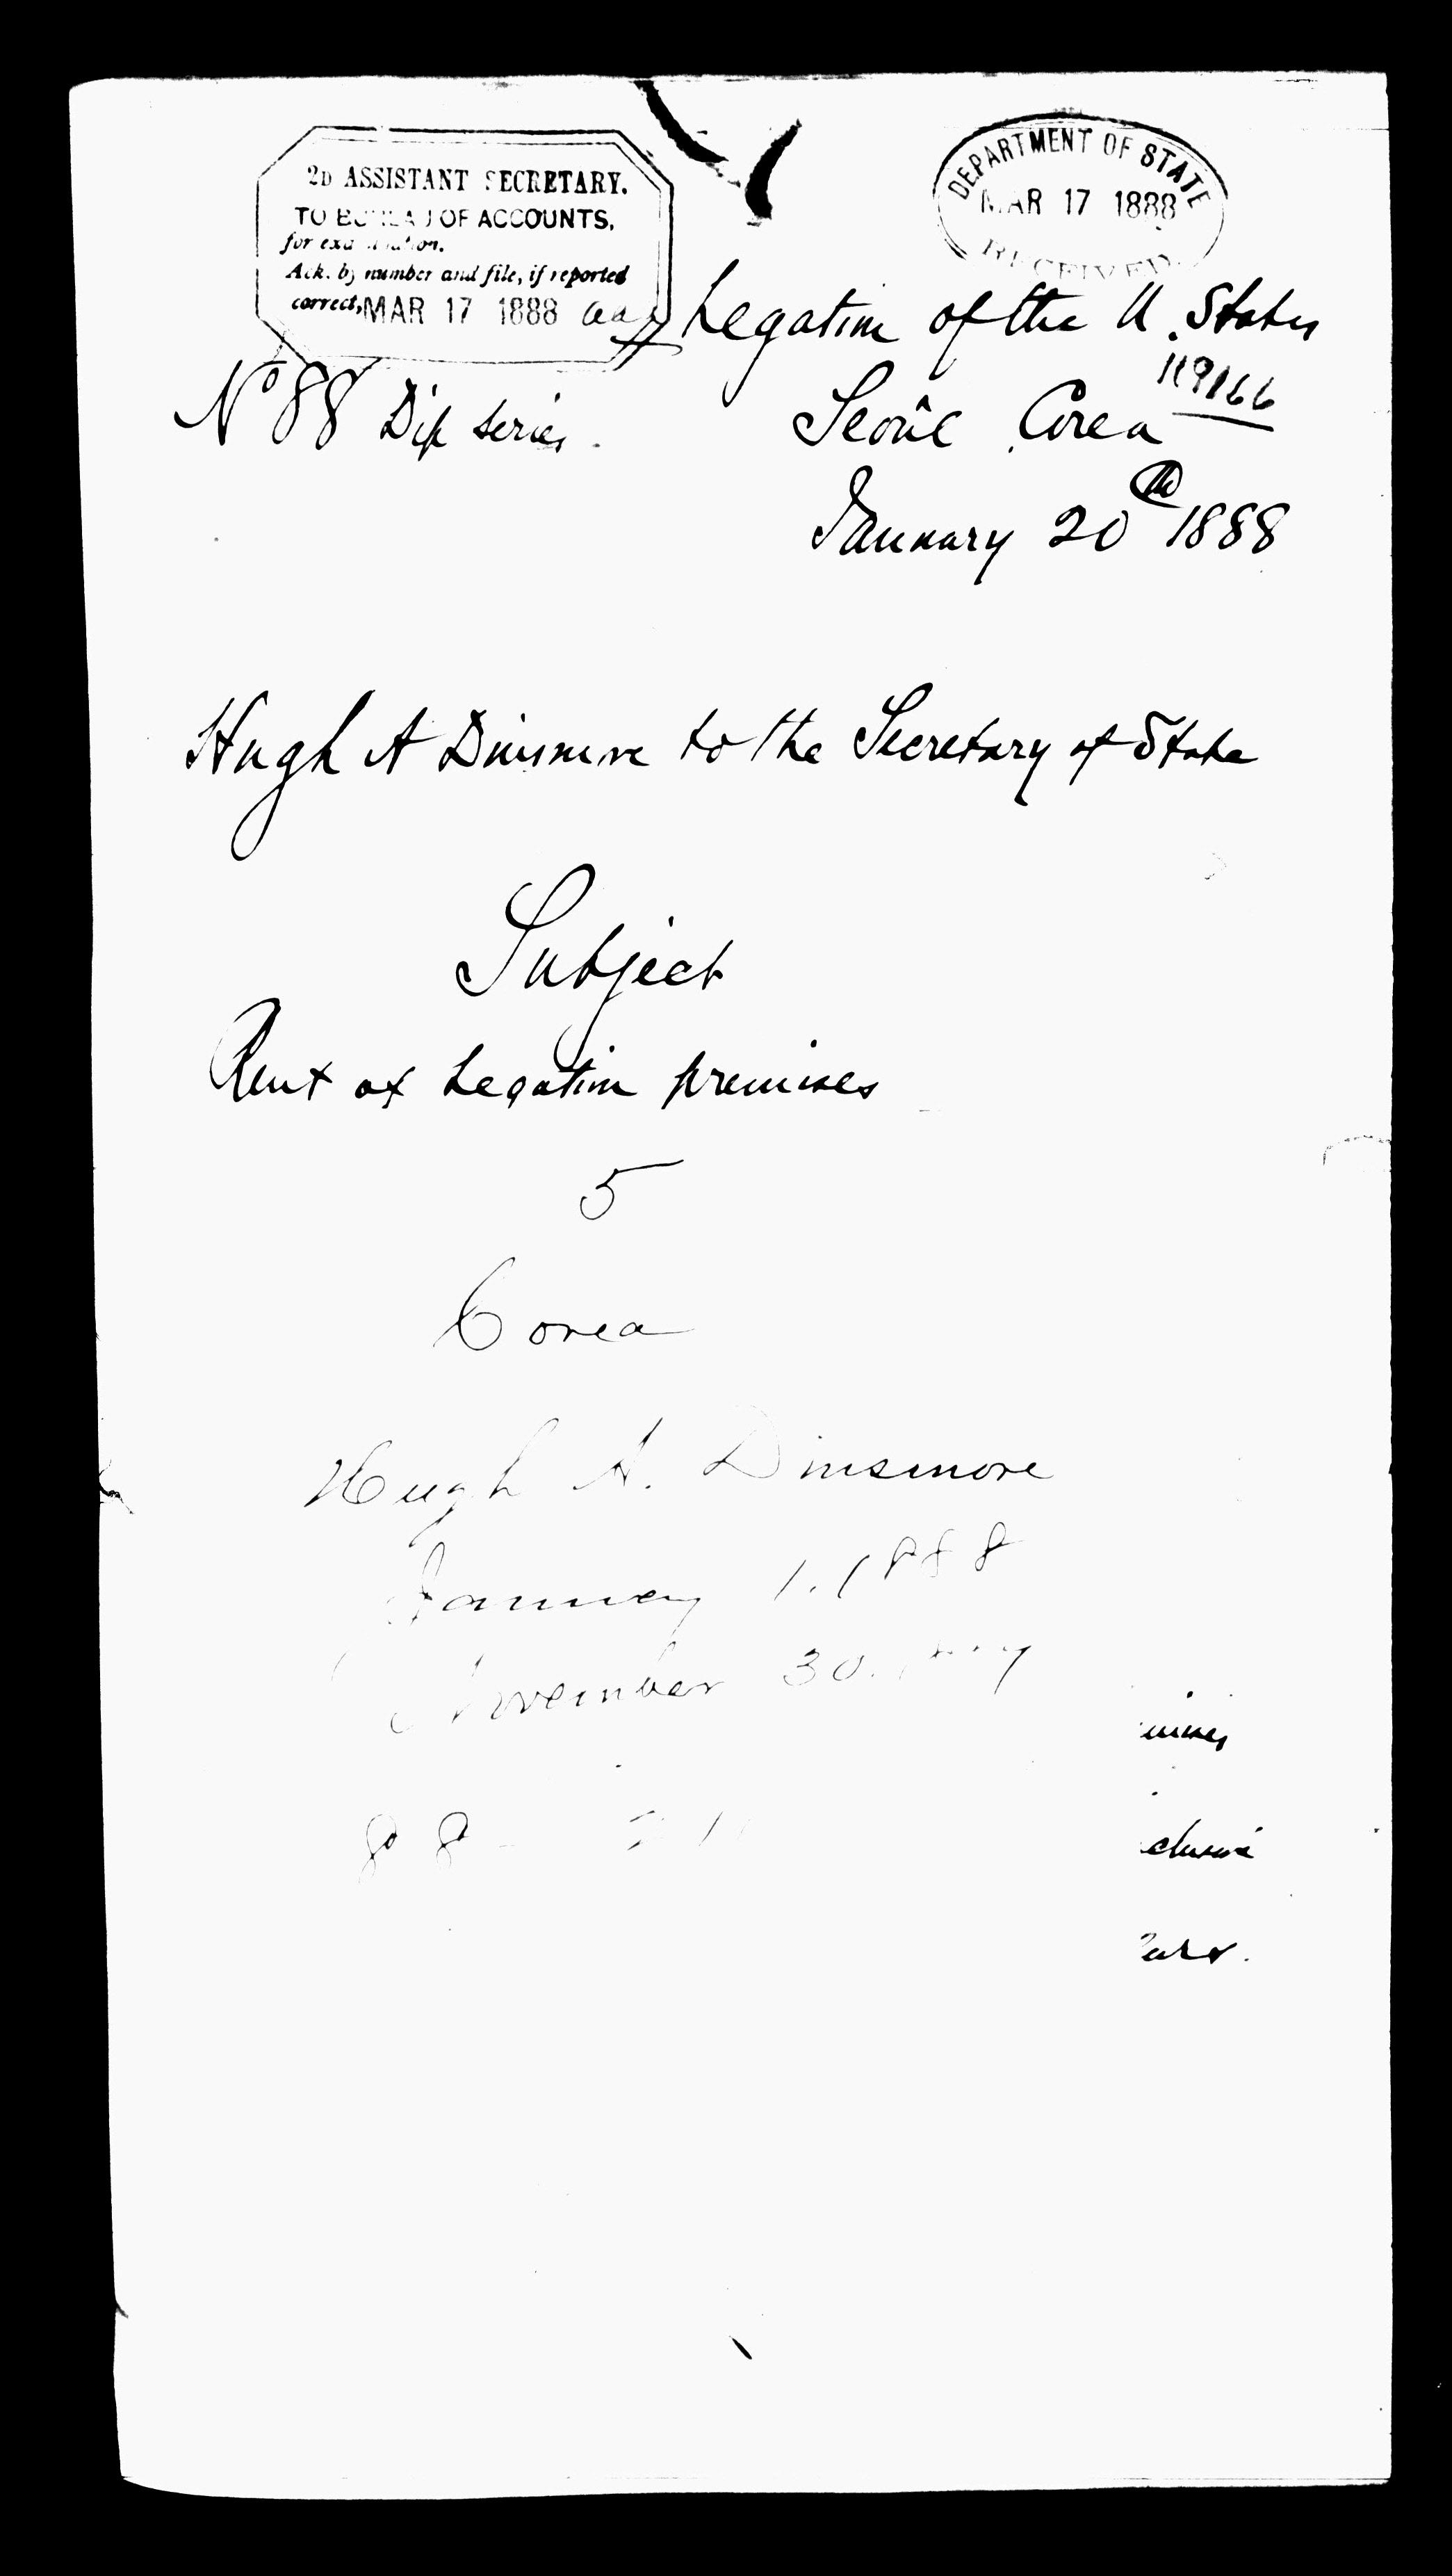 2D ASSISTANT SECRETARY.
TO BUREAU OF ACCOUNTS,
for examination.
Ack. by number and file, if reported
correct, MAR 17 1888
DEPARTMENT OF STATE
MAR 17 1888
RECEIVED
Legation of the U. States
119166
No 88 Dip series.
Seoul Corea
January 20th 1888
Hugh A Dinsmore to the Secretary of State
Subject
Rent of Legation premises
5
Corea
Hugh A. Dinsmore
January 1. 1888
November 30.
88